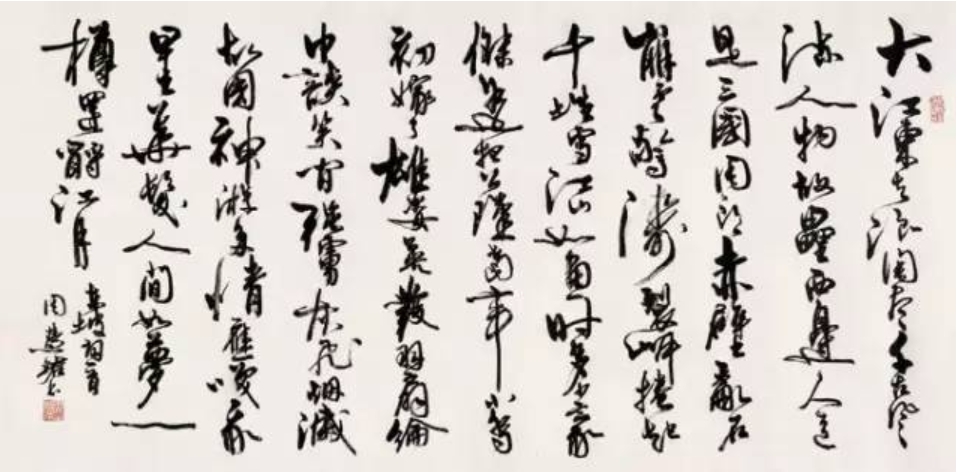 大江東去浪淘盡千古風
流人物故壘西邊人道
是三國周郎赤壁亂石
崩雲驚濤裂岸捲起
千堆雪江山如畫一時多少豪
傑遙想公瑾當年小喬
初嫁了雄姿英發羽扇綸
巾談笑間強虜灰飛煙滅
故國神遊多情應笑我
早生華髮人間如夢一
樽還酹江月
東坡詞一首
周慧珺书